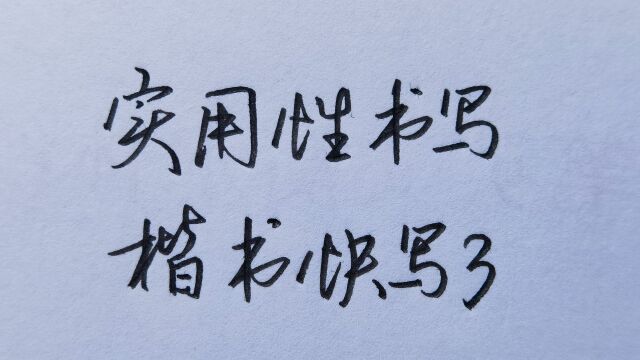 实用性书写
楷书快写3